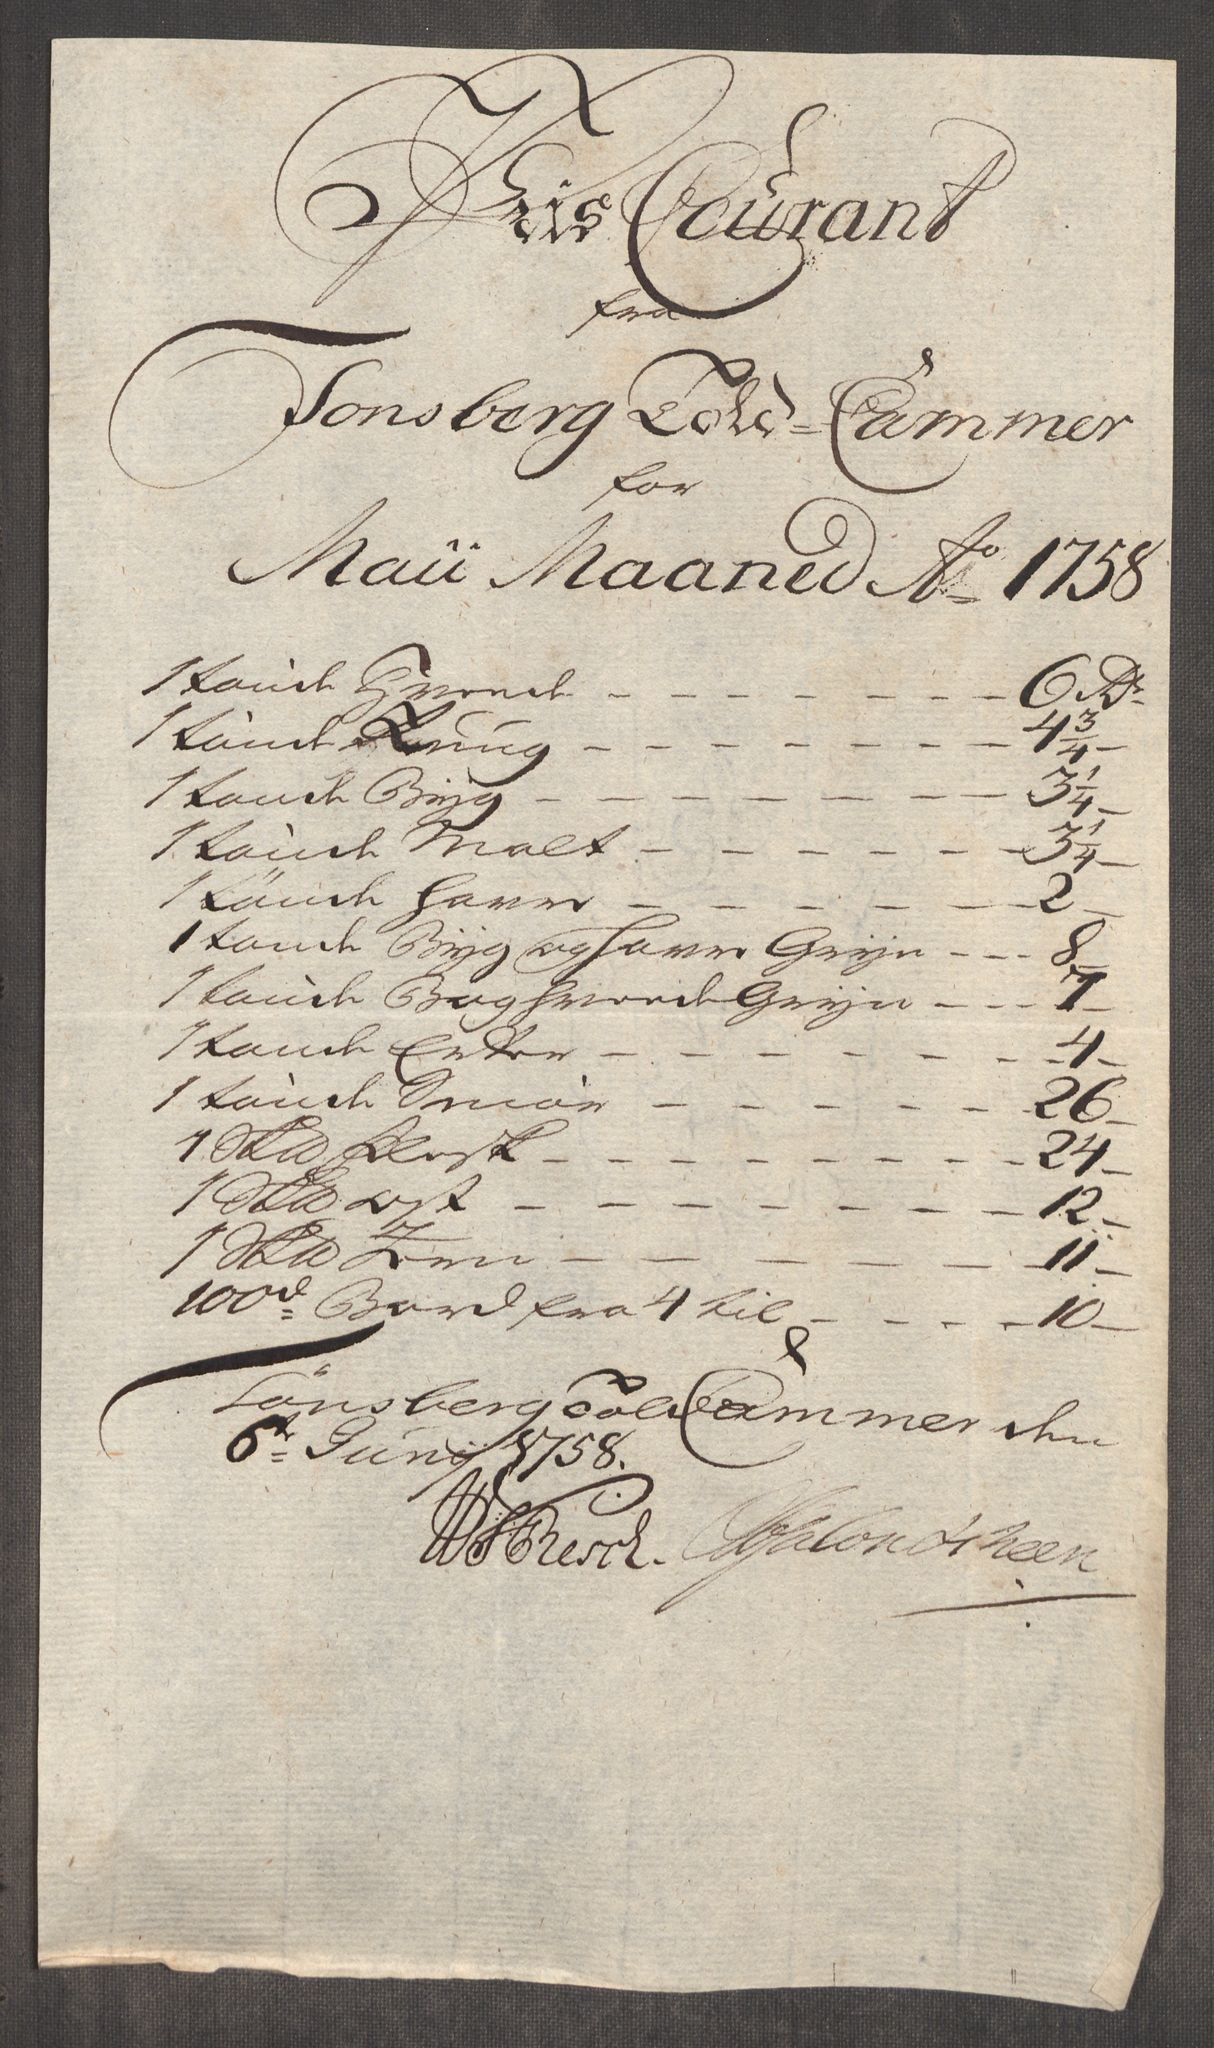 Preis Courant
fra
Tonsberg Told-Cammer
for
Maii Maaned Ao 1758
1 tønde Hvede - - - - - - - - 6 Rdr
1 tønde Rüug - - - - - - - - 4 3/4 -
1 tønde Bÿg - - - - - - - - 3 1/4 -
1 tønde Malt - - - - - - - 3 1/4 -
1 tønde Havre - - - - - - - 2 -
1 tønde Bÿg og Havre Grÿn - - - 8 -
1 tønde Boghvede Grÿn - - - 7 -
1 tønde Erter - - - - - - - - 4 -
1 tønde Smør - - - - - - 26 -
1 Skd Flesk - - - - - - - - 24 -
1 Skd ost - - - - - - - - 12 -
1 Skd - - - - - - - 11 -
100d Bord fra 4 til - - - - 10 -
Tønsberg Told Cammer den
6t Junÿ 1758.
Resch.